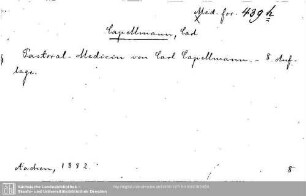 Med. for. 439 h
Capellmann, Carl
Pastoral-Medicin von Carl Capellmann. - 8 Auf-
lage.
Aachen, 1892. 8
Sächsische Landesbibliothek -
Staats- und Universitätsbibliothek Dresden